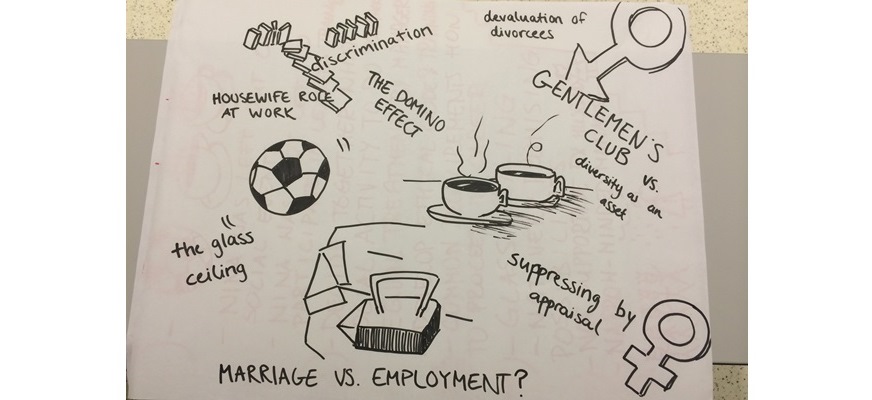 devaluation of
divorcees
discrimination
THE DOMINO
EFFECT
HOUSEWIFE ROLE
AT WORK
GENTLEMEN'S
CLUB
vs.
diversity as an
asset
the glass
ceiling
suppressing by
appraisal
MARRIAGE VS. EMPLOYMENT?